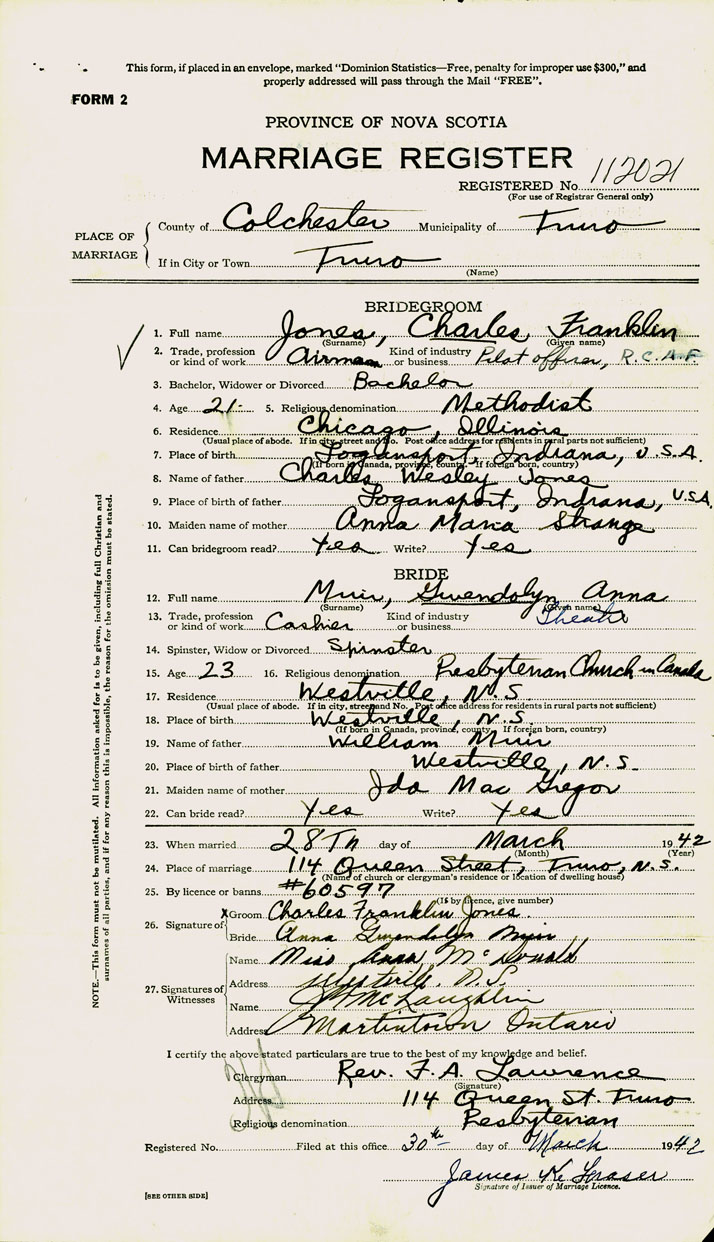 This form, if placed in an envelope, marked "Dominion Statistics—Free, penalty for improper use $300," and
properly addressed will pass through the Mail "FREE".
FORM 2
PROVINCE OF NOVA SCOTIA
MARRIAGE REGISTER
REGISTERED No. 112021
(For use of Registrar General only)
PLACE OF MARRIAGE
County of Colchester Municipality of Truro
If in City or Town Truro
(Name)
BRIDEGROOM
1. Full name Jones, Charles Franklin
(Surname) (Given name)
2. Trade, profession or kind of work Airman Kind of industry or business Pilot officer, R.C.A.F.
3. Bachelor, Widower or Divorced Bachelor
4. Age 21 5. Religious denomination Methodist
6. Residence Chicago, Illinois
(Usual place of abode. If in city, street and No. Post office address for residents in rural parts not sufficient)
7. Place of birth Logansport, Indiana, U.S.A.
(If born in Canada, province, county. If foreign born, country)
8. Name of father Charles Wesley Jones
9. Place of birth of father Logansport, Indiana, U.S.A.
10. Maiden name of mother Anna Maria Strange
11. Can bridegroom read? Yes Write? Yes
BRIDE
12. Full name Muir, Gwendolyn Anna
(Surname) (Given name)
13. Trade, profession or kind of work Cashier Kind of industry or business Theatre
14. Spinster, Widow or Divorced Spinster
15. Age 23 16. Religious denomination Presbyterian Church in Canada
17. Residence Westville, N.S.
(Usual place of abode. If in city, street and No. Post office address for residents in rural parts not sufficient)
18. Place of birth Westville, N.S.
(If born in Canada, province, county. If foreign born, country)
19. Name of father William Muir
20. Place of birth of father Westville, N.S.
21. Maiden name of mother Ida Mac Gregor
22. Can bride read? Yes Write? Yes
23. When married 28Th day of March 1942
(Month) (Year)
24. Place of marriage 114 Queen Street, Truro, N.S.
(Name of church or clergyman's residence or location of dwelling house)
25. By licence or banns #60597
(If by licence, give number)
26. Signature of
X Groom Charles Franklin Jones
Bride Anna Gwendolyn Muir
27. Signatures of Witnesses
Name Miss Anna McDonald
Address Westville, N.S.
Name McLaughlin
Address Martintown Ontario
I certify the above stated particulars are true to the best of my knowledge and belief.
Clergyman Rev. F. A. Lawrence
(Signature)
Address 114 Queen St. Truro
Religious denomination Presbyterian
Registered No. Filed at this office 30th day of March 1942
James K. Fraser
Signature of Issuer of Marriage Licence.
[SEE OTHER SIDE]
NOTE.—This form must not be mutilated. All information asked for is to be given, including full Christian and
surnames of all parties, and if for any reason this is impossible, the reason for the omission must be stated.